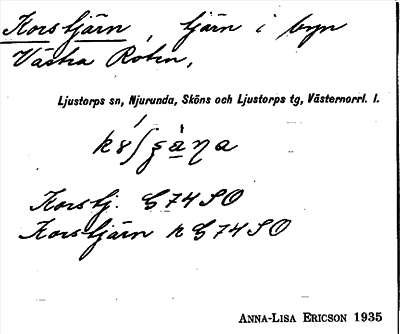 Korstjärn, tjärn i byn
Västra Roten,
Ljustorps sn, Njurunda, Sköns och Ljustorps tg, Västernorrl. l.
Korstj. G74SO
Korstjärn k G74SO
ANNA-LISA ERICSON 1935